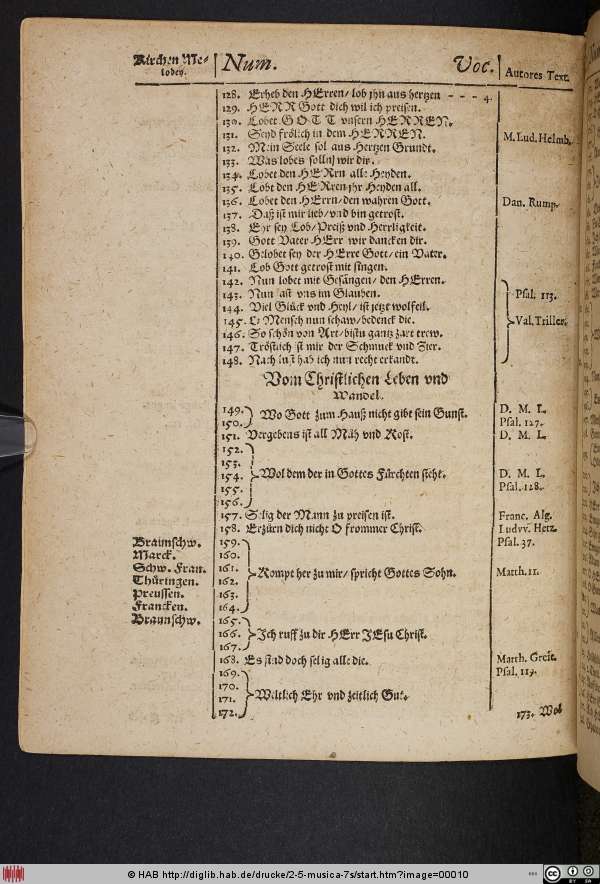 Kirchen Me-
lodey.
Num.
Voc.
Autores Text.
128. Erheb den HErren/ lob jhn aus hertzen - - - 4.
129. HERR Gott dich wil ich preisen.
130. Lobet GOTT unsern HERREN.
131. Seyd frölich in dem HERREN. M. Lud. Helmb.
132. Mein Seele sol aus Hertzen Grundt.
133. Was lobes solln wir dir.
134. Lobet den HERrn alle Heyden.
135. Lobt den HERren jhr Heyden all.
136. Lobet den HErrn/ den wahren Gott. Dan. Rump.
137. Daß ist mir lieb/ vnd bin getrost.
138. Ehr sey Lob/ Preiß vnd Herrligkeit.
139. Gott Vater HErr wir dancken dir.
140. Gelobet sey der HErre Gott/ ein Vater.
141. Lob Gott getrost mit singen.
142. Nun lobet mit Gesängen/ den HErren.
143. Nun last vns im Glauben. Psal. 113.
144. Viel Glück vnd Heyl/ ist jetzt wolfeil.
145. O Mensch nun schaw/ bedenck die. Val. Triller.
146. So schön von Art/ bistu gantz zart trew.
147. Tröstlich ist mir der Schmuck vnd Zier.
148. Nach lust hab ich nun recht erkandt.
Vom Christlichen Leben vnd
Wandel.
149. Wo Gott zum Hauß nicht gibt sein Gunst. D. M. L.
150. Psal. 127.
151. Vergebens ist all Müh vnd Kost. D. M. L.
152.
153.
154. Wol dem der in Gottes Fürchten steht. D. M. L.
155. Psal. 128.
156.
157. Selig der Mann zu preisen ist. Franc. Alg.
158. Erzürn dich nicht O frommer Christ. Ludvv. Hetz.
Braunschw. 159. Psal. 37.
Marck. 160.
Schw. Fran. 161. Kompt her zu mir/ spricht Gottes Sohn. Matth. 11.
Thüringen. 162.
Preussen. 163.
Francken. 164.
Braunschw. 165.
166. Ich ruff zu dir HErr JEsu Christ.
167.
168. Es sind doch selig alle die. Matth. Greit.
169. Psal. 119.
170.
171. Weltlich Ehr vnd zeitlich Gut.
172.
173. Wol
© HAB http://diglib.hab.de/drucke/2-5-musica-7s/start.htm?image=00010